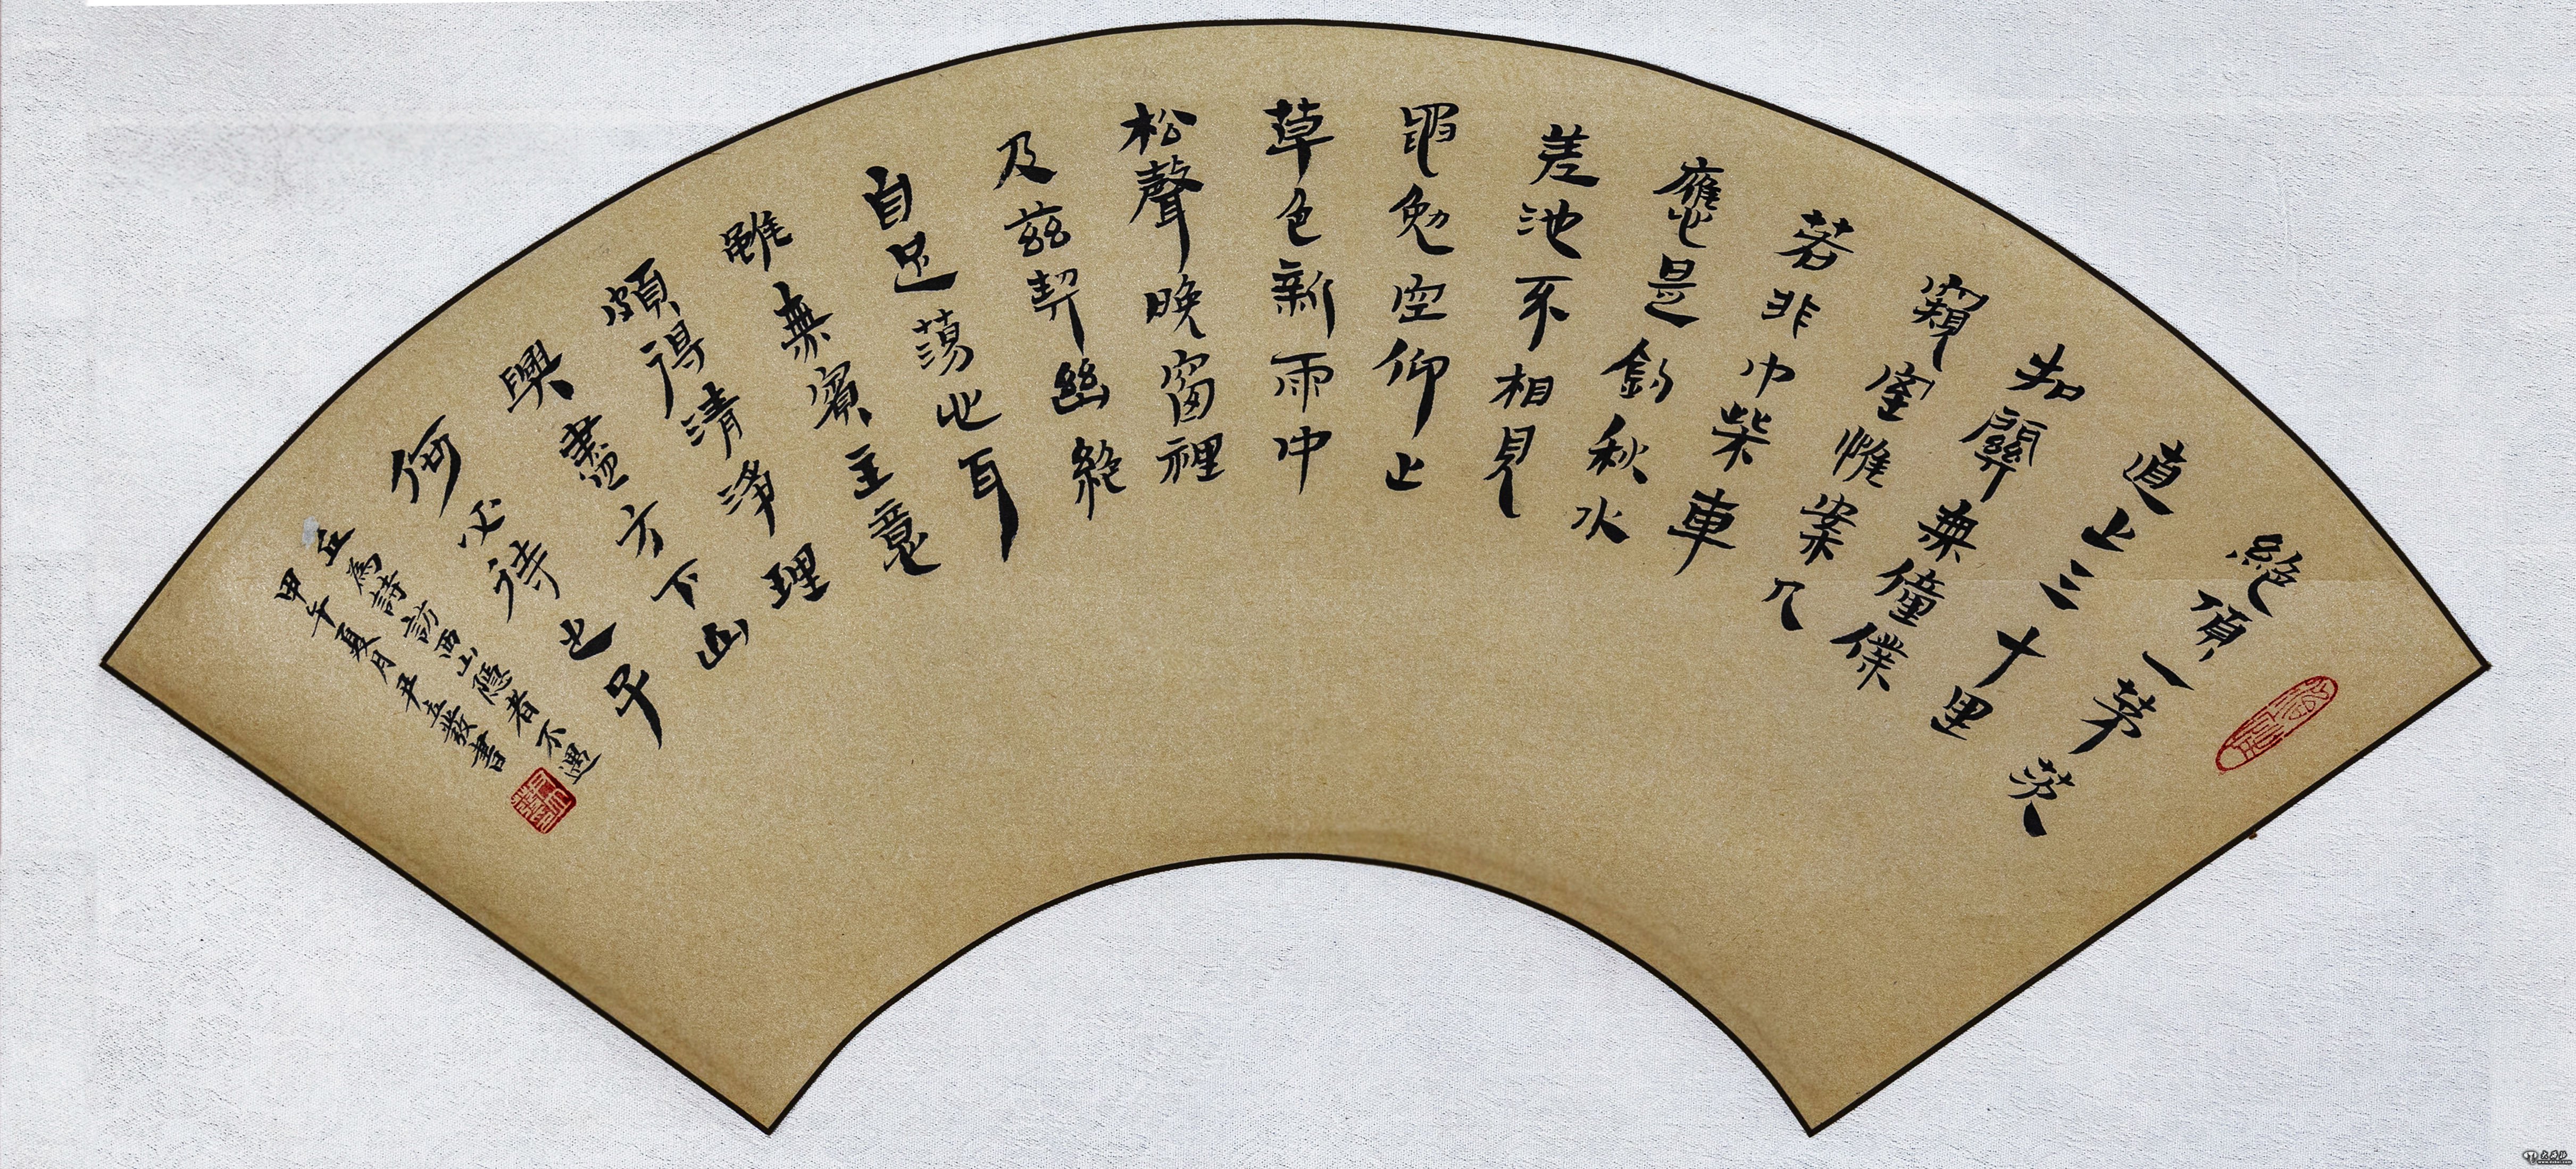 絕頂一茅茨
直上三十里
扣關無僮僕
窺室惟案几
若非巾柴車
應是釣秋水
差池不相見
黽勉空仰止
草色新雨中
松聲晚窗裡
及茲契幽絕
自足蕩心耳
雖無賓主意
頗得清淨理
興盡方下山
何必待之子
丘為詩訪西山隱者不遇
甲午夏月書